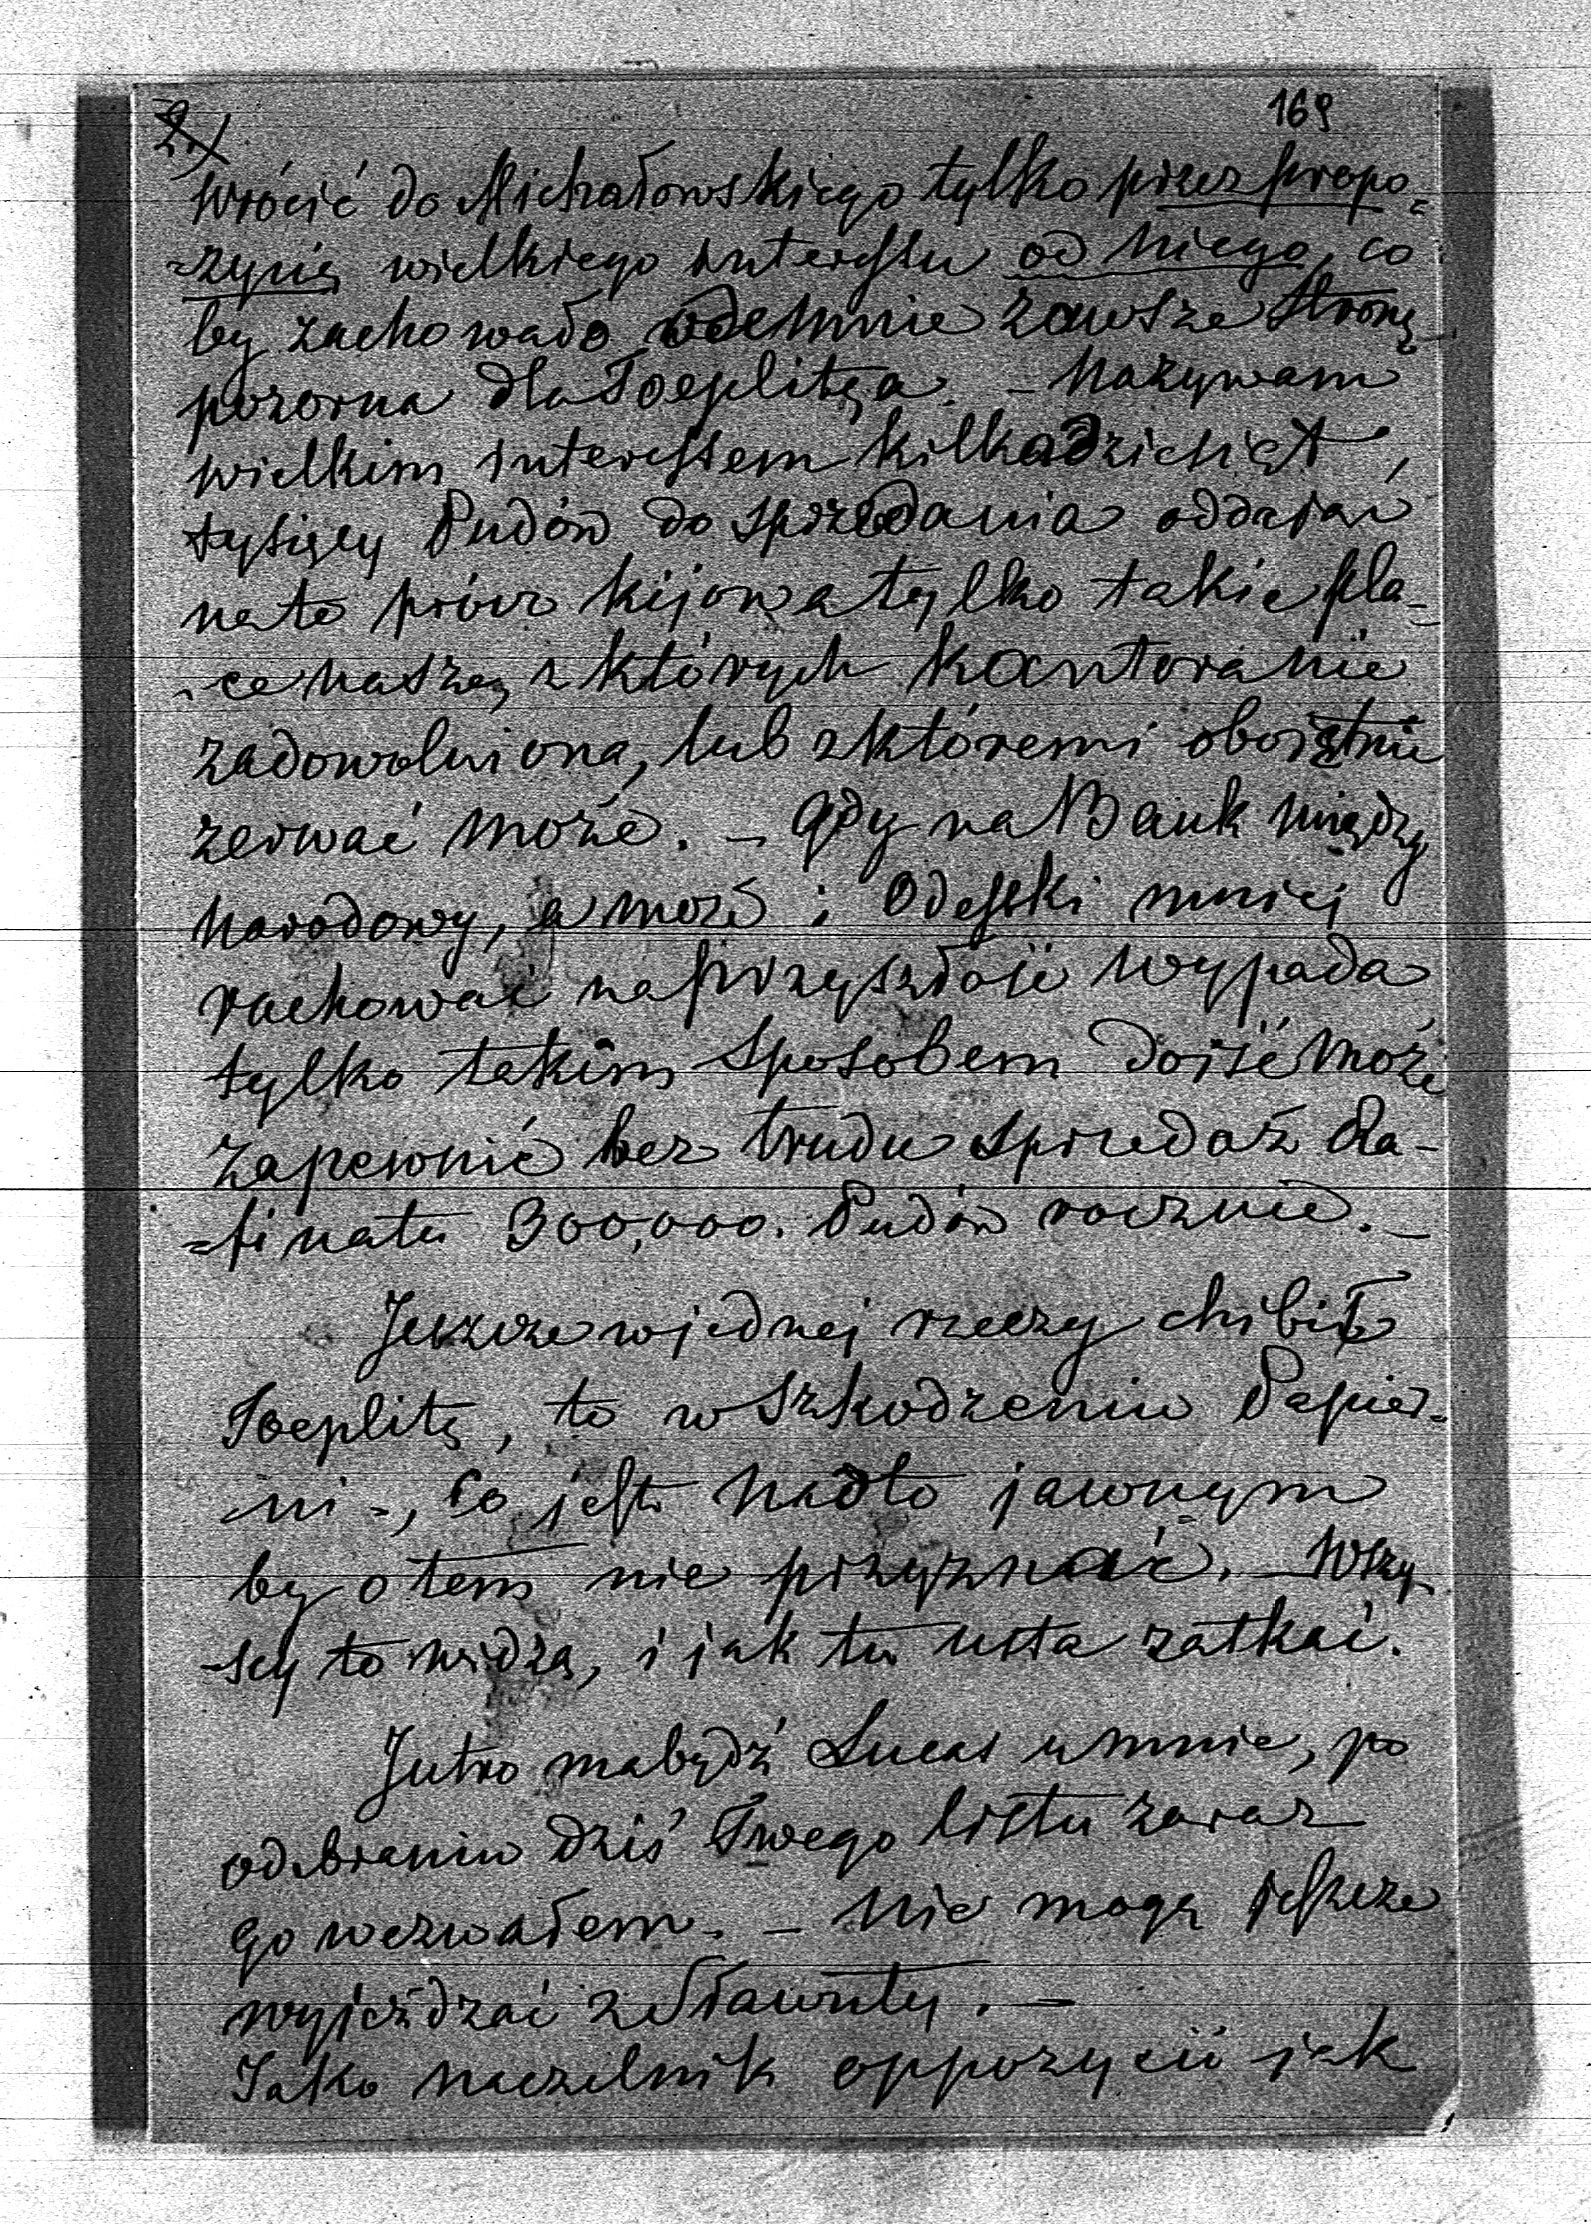 169
2.)
Wrócić do Michałowskiego tylko przez propo=
=zycię wielkiego interessu od niego, co
by zachowało odemnie zawsze stronę
pozorna dla Toeplitza. – Nazywam
wielkim interessem kilkadziesiąt
tysięcy Pudów do sprzedania oddając
na to prócz Kijowa tylko takie pla-
-ce nasze, z których kantora nie
zadowolniona, lub z któremi obojętnie
zerwać może. – Gdy na Bank między
narodowy, a może i Odesski mniej
rachować na przyszłość wypada
tylko takim sposobem dojść może
zapewnić bez trudu sprzedaż Ra-
=finatu 300,000. Pudów rocznie. –
Jeszcze w jednej rzeczy chibił
Toeplitz, to w szkodzeniu Papier-
-ni -, co jest nadto jawnym
by o tem nie przyznać. – Wszy-
-scy to widzą, i jak tu usta zatkać.
Jutro ma bydź Lucas u mnie, po
odebraniu dziś Twego listu zaraz
go wezwałem. – Nie mogę jeszcze
wyjeżdzać z Sławuty. –
Jako naczelnik oppozycii jak